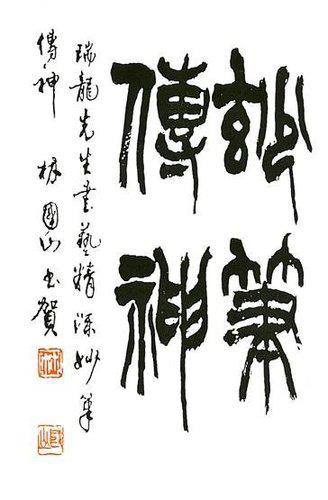 妙筆
傳神
瑞龍先生書藝精深妙筆
傳神 林國山書賀